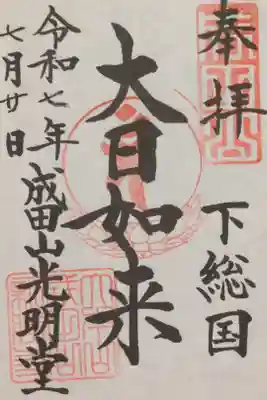 奉拝
下総国
大日如来
成田山光明堂
令和七年
七月廿日